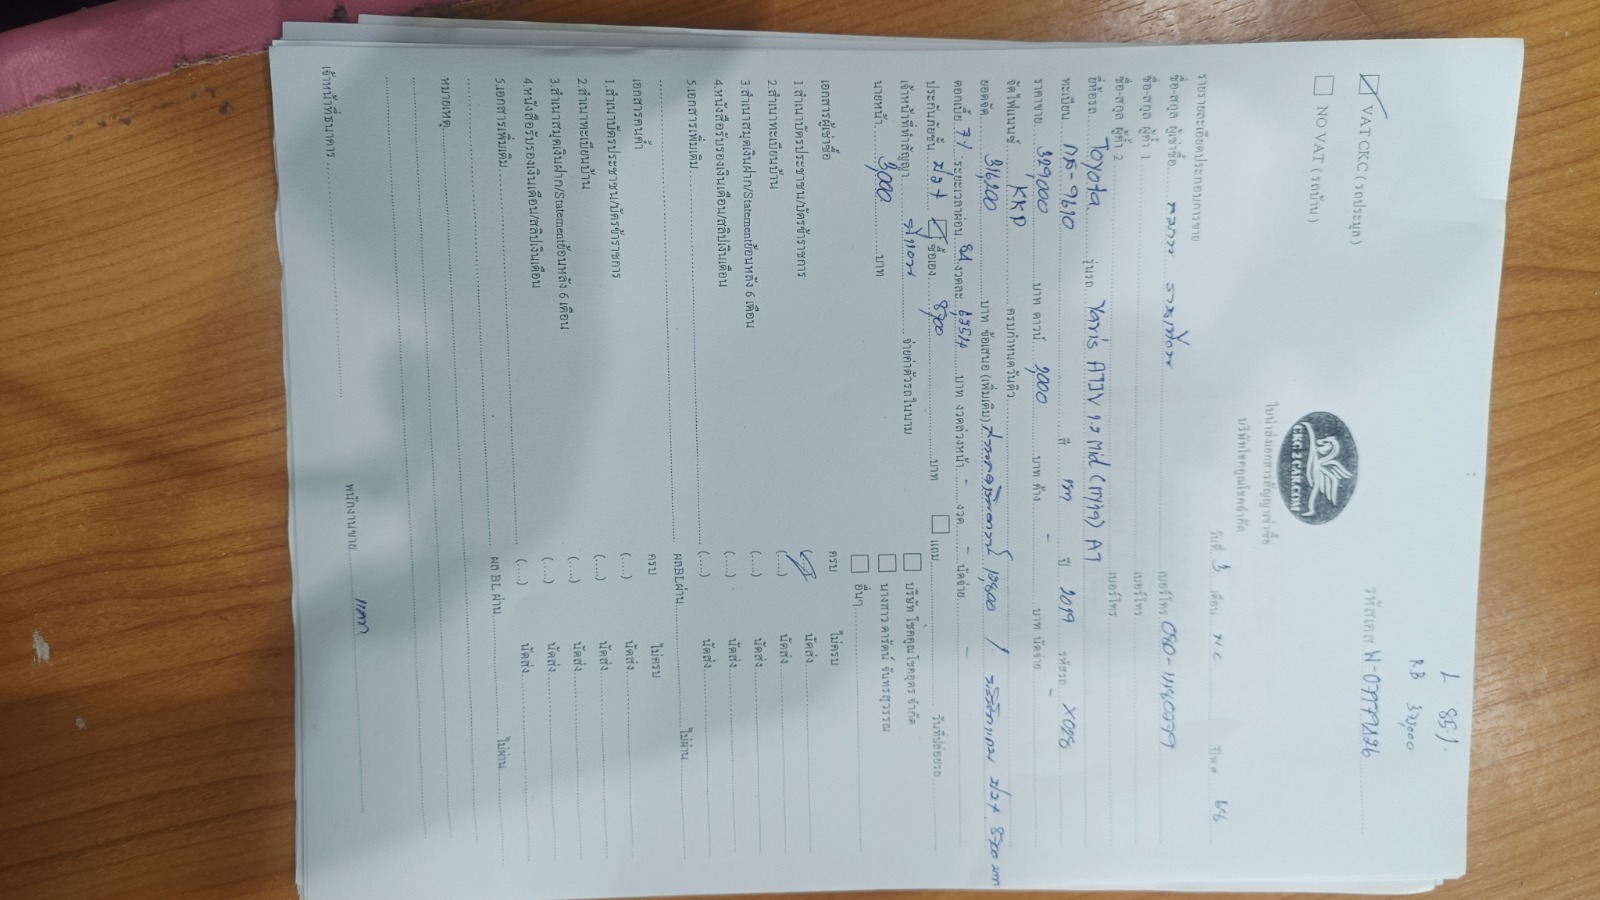 L 85%
RB 32,000
รหัสเคส W-07779826
☑ VAT CKC ( รถประมูล )
☐ NO VAT ( รถบ้าน )
CKC 2 CAR.COM
ใบนำส่งเอกสารสัญญาเช่าซื้อ
บริษัทโชคคูณโชคจำกัด
วันที่ 3 เดือน พ.ย ปีพศ 68
รายรายละเอียดประกอบการขาย
ชื่อ-สกุล ผู้เช่าซื้อ เบอร์โทร
ชื่อ-สกุล ผู้ค้ำ 1 เบอร์โทร
ชื่อ-สกุล ผู้ค้ำ 2 เบอร์โทร
ยี่ห้อรถ Toyota รุ่นรถ Yaris ATIV 1.2 Mid (เทาดำ) AT
ทะเบียน สี เทา ปี 2019 รหัสรถ - X028
ราคาขาย 329,000 บาท ดาวน์ 2,000 บาท ค้าง - บาท นัดจ่าย
จัดไฟแนนซ์ KKP ครบกำหนดวันคิว
ยอดจัด 316,200 บาท ข้อเสนอ (เพิ่มเติม) 12,800 / 8700 บาท
ดอกเบี้ย 7% ระยะเวลาผ่อน 84 งวดละ บาท งวดล่วงหน้า - งวด - นัดจ่าย -
ประกันภัยชั้น ป.2+ ☑ ซื้อเอง 8700 บาท ☐ แถม วันที่ปล่อยรถ
เจ้าหน้าที่ทำสัญญา จ่ายค่าตัวรถในนาม ☐ บริษัท โชคคูณโชคยูคร จำกัด
นายหน้า 3,000 บาท ☐ นางสาว ดารัตน์ จันทรสุวรรณ
☐ อื่นๆ
เอกสารผู้เช่าซื้อ ครบ ไม่ครบ
1.สำเนาบัตรประชาชน/บัตรข้าราชการ นัดส่ง
2.สำเนาทะเบียนบ้าน (....) นัดส่ง
3.สำเนาสมุดเงินฝาก/Statementย้อนหลัง 6 เดือน (....) นัดส่ง
4.หนังสือรับรองเงินเดือน/สลิปเงินเดือน (....) นัดส่ง
5.เอกสารเพิ่มเติม (....) นัดส่ง
ผลBLผ่าน ไม่ผ่าน
เอกสารคนค้ำ ครบ ไม่ครบ
1.สำเนาบัตรประชาชน/บัตรข้าราชการ (....) นัดส่ง
2.สำเนาทะเบียนบ้าน (....) นัดส่ง
3.สำเนาสมุดเงินฝาก/Statementย้อนหลัง 6 เดือน (....) นัดส่ง
4.หนังสือรับรองเงินเดือน/สลิปเงินเดือน (....) นัดส่ง
5.เอกสารเพิ่มเติม (....) นัดส่ง
ผล BL ผ่าน ไม่ผ่าน
หมายเหตุ
เจ้าหน้าที่ธนาคาร พนักงานขาย